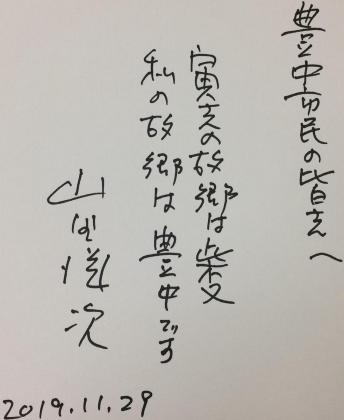 豊中市民の皆さんへ
寅さんの故郷は柴又
私の故郷は豊中です
山田洋次
2019.11.29